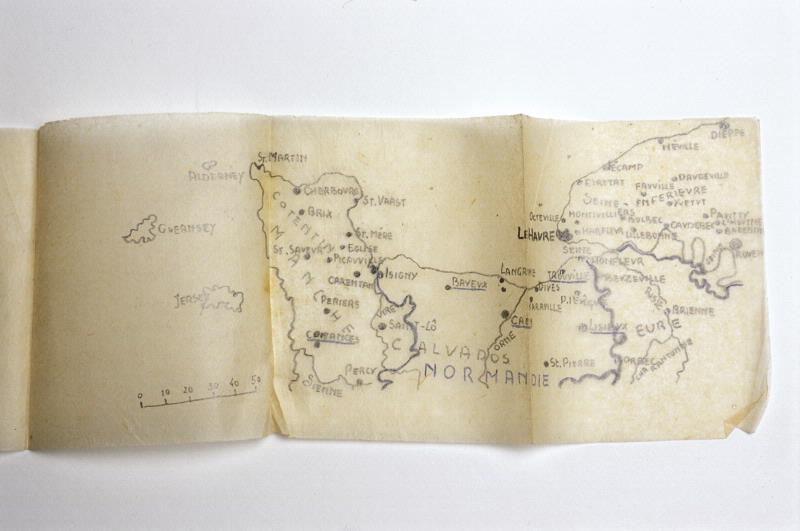 ALDERNEY
GUERNSEY
JERSEY
0 10 20 30 40 50
ST. MARTIN
CHERBOURG
ST. VAAST
BRIX
COTENTIN
ST. MÈRE
EGLISE
ST. SAVEUR
PICAUVILLE
MANCHE
CARENTAN
ISIGNY
PERIERS
VIRE
SAINT-LÔ
COUTANCES
PERCY
SIENNE
CALVADOS
NORMANDIE
BAYEUX
LANGRUNE
CAEN
ORNE
ST. PIERRE
DIEPPE
NÉVILLE
FÉCAMP
ÉTRETAT
DAUDEVILLE
FAUVILLE
SEINE-INFERIEURE
YVETOT
OCTEVILLE
MONTIVILLIERS
BOLBEC
PAVILLY
CAUDEBEC
LE HAVRE
HARFLEUR
LILLEBONNE
BARENTIN
ROUEN
SEINE
HONFLEUR
TROUVILLE
BEUZEVILLE
DIVES
RISLE
BRIENNE
LISIEUX
EURE
ORBEC
CHARENTONNE